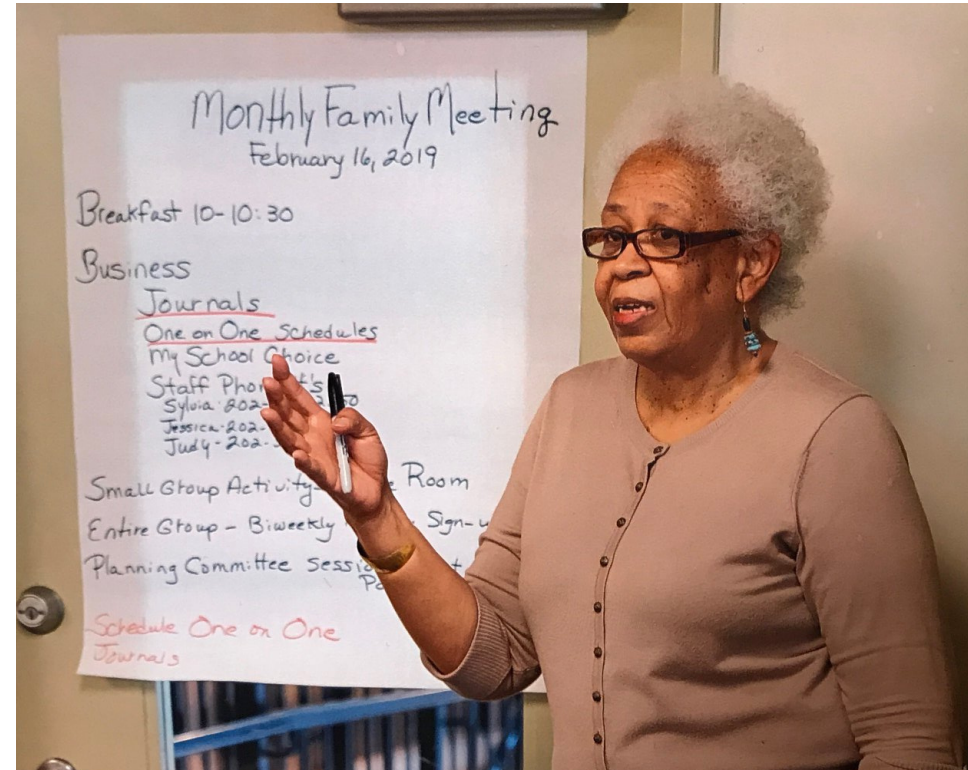 Monthly Family Meeting
February 16, 2019
Breakfast 10-10:30
Business
Journals
One on One Schedules
My School Choice
Staff
Sylvia-202-
Jessica-202-
Judy-202-
Small Group Activity- Room
Entire Group - Biweekly
Planning Committee
Schedule One on One
Journals